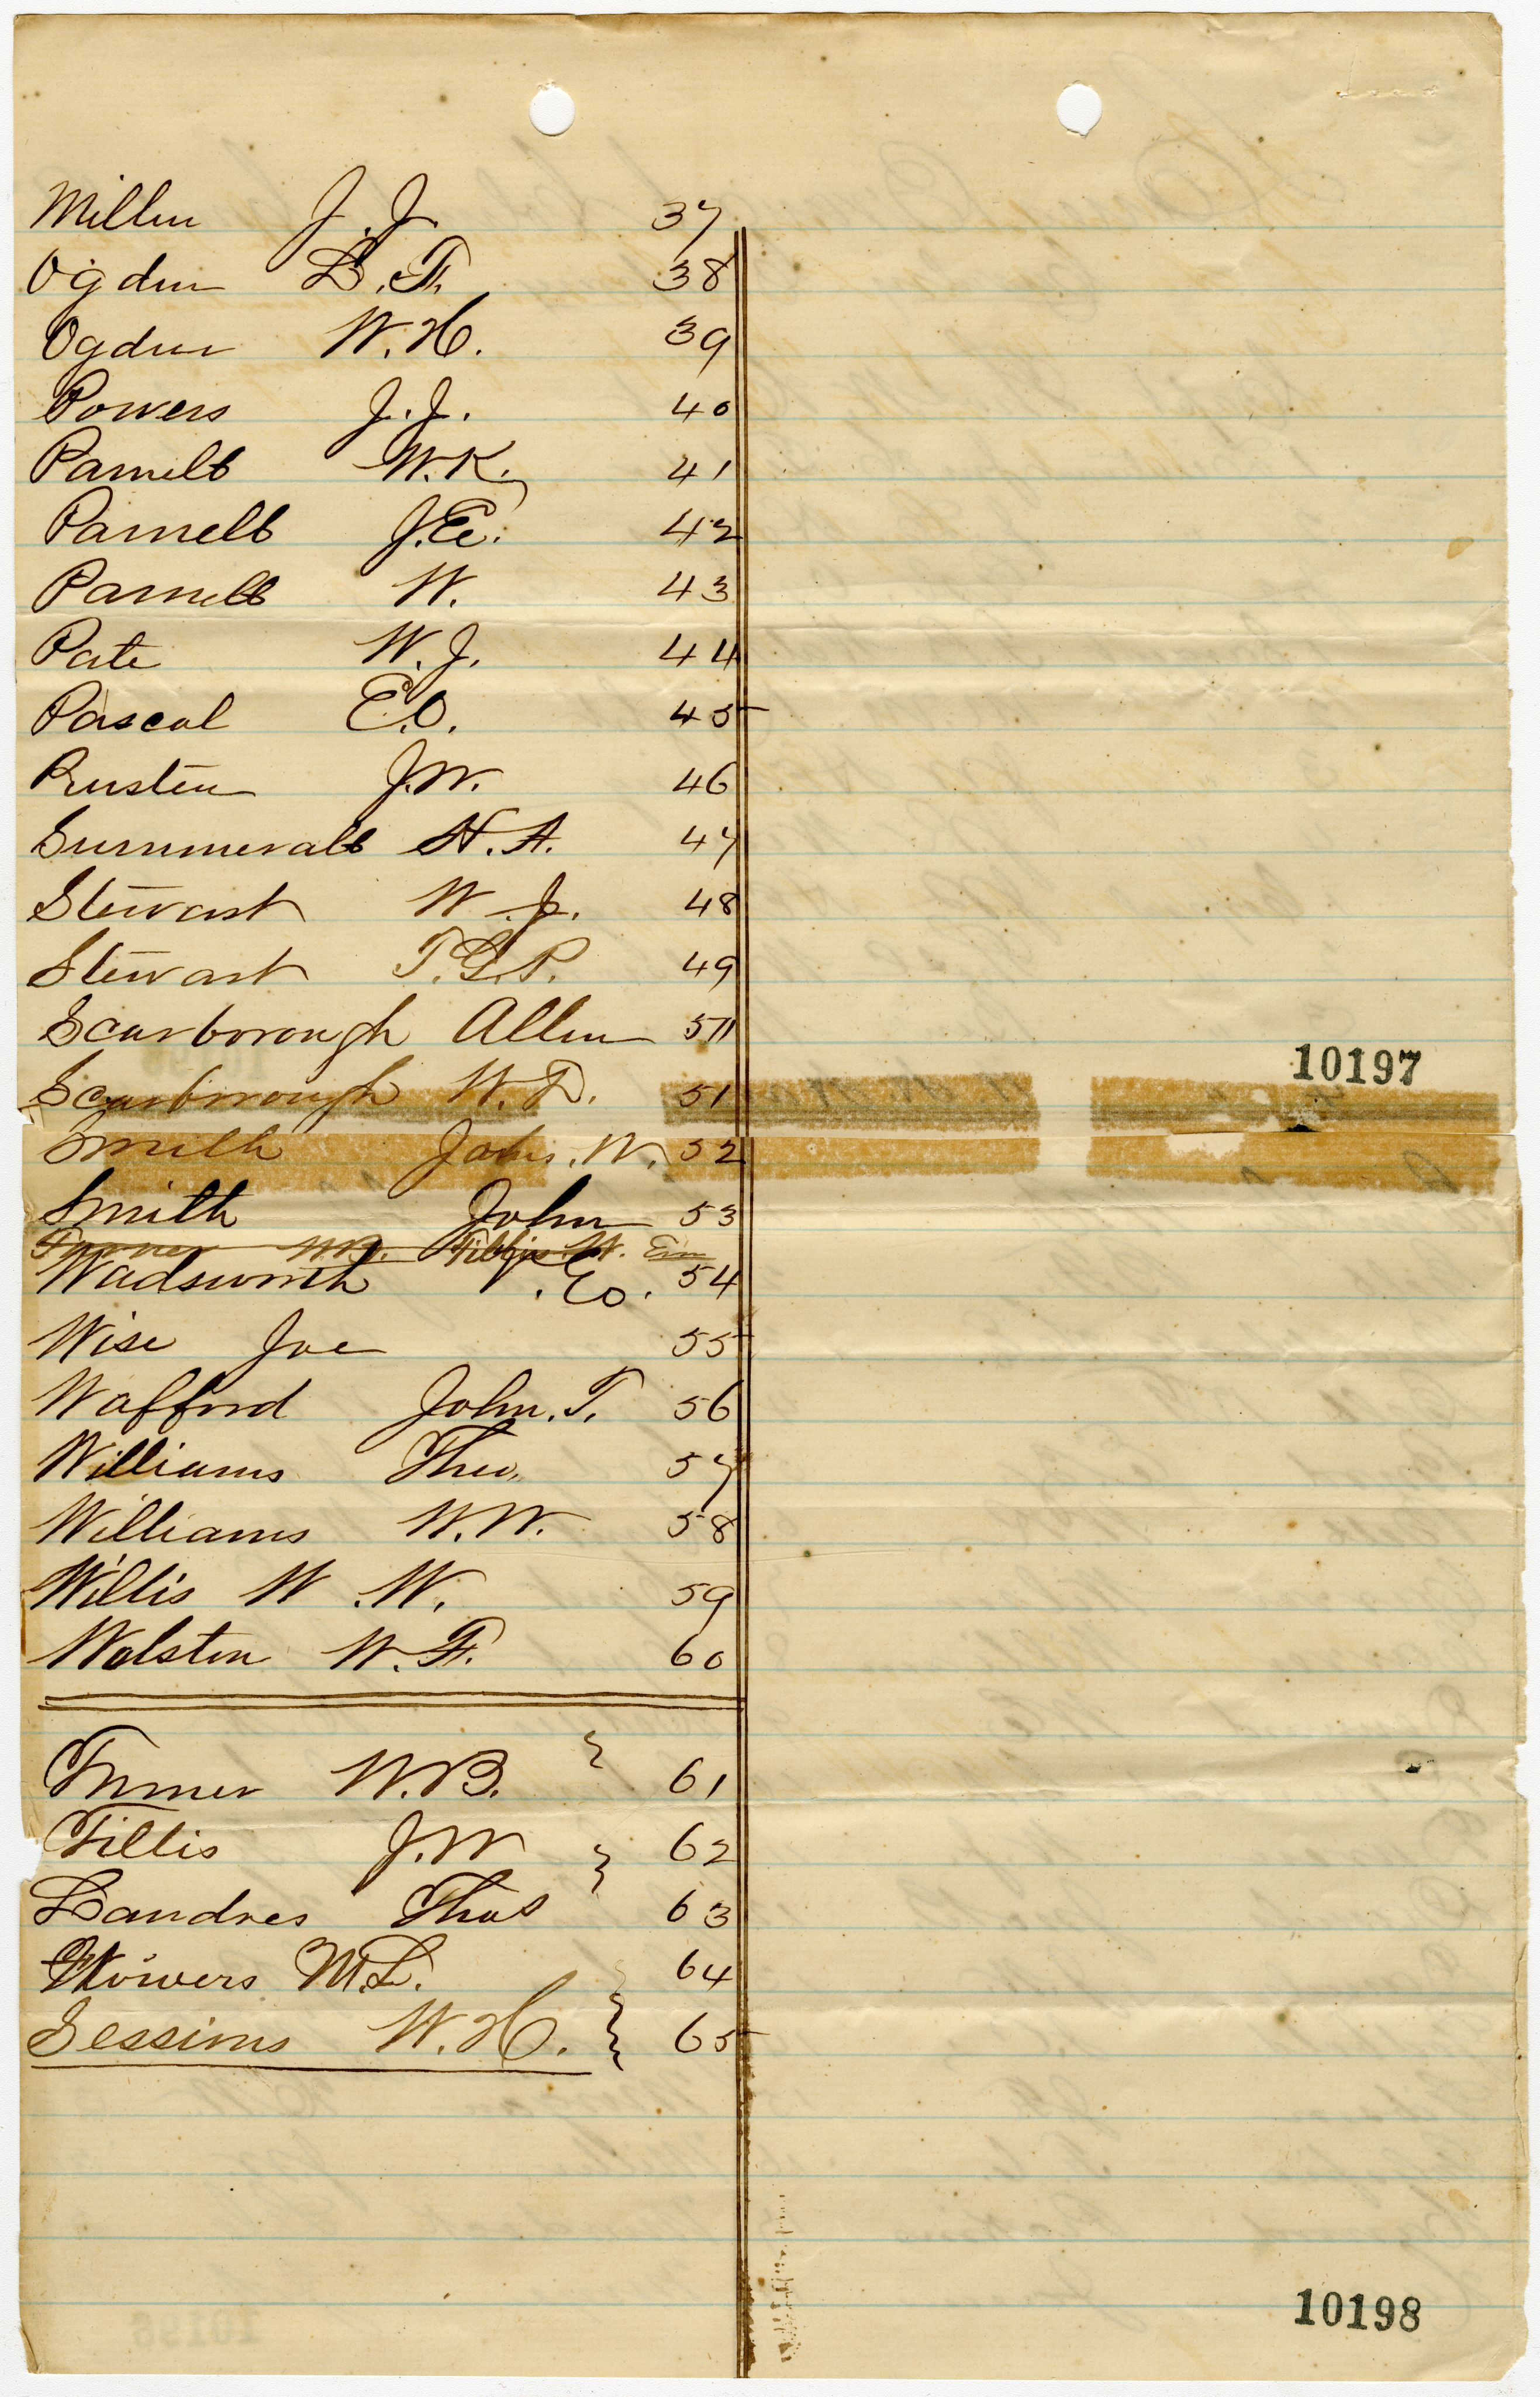 Miller J. J. 37
Ogden L. F. 38
Ogden W. H. 39
Powers J. J. 40
Parnell W. K. 41
Parnell J. E. 42
Parnell W. 43
Pate W. J. 44
Pascal E. O. 45
Rusten J. W. 46
Summerall H. A. 47
Stewart W. J. 48
Stewart T. G. P. 49
Scarborough Allen 50
10197
Scarborough W. D. 51
Smith John. W. 52
Smith John 53
Turner W. B. Tillis W.
Wadsworth . Eo. 54
Wise Joe 55
Wafford John. T. 56
Williams Theo. 57
Williams W. W. 58
Willis W. W. 59
Wolsten W. F. 60
Turner W. B. 61
Tillis J. W 62
Landres Thos 63
Flowers M. L. 64
Sessions W. H. 65
10198